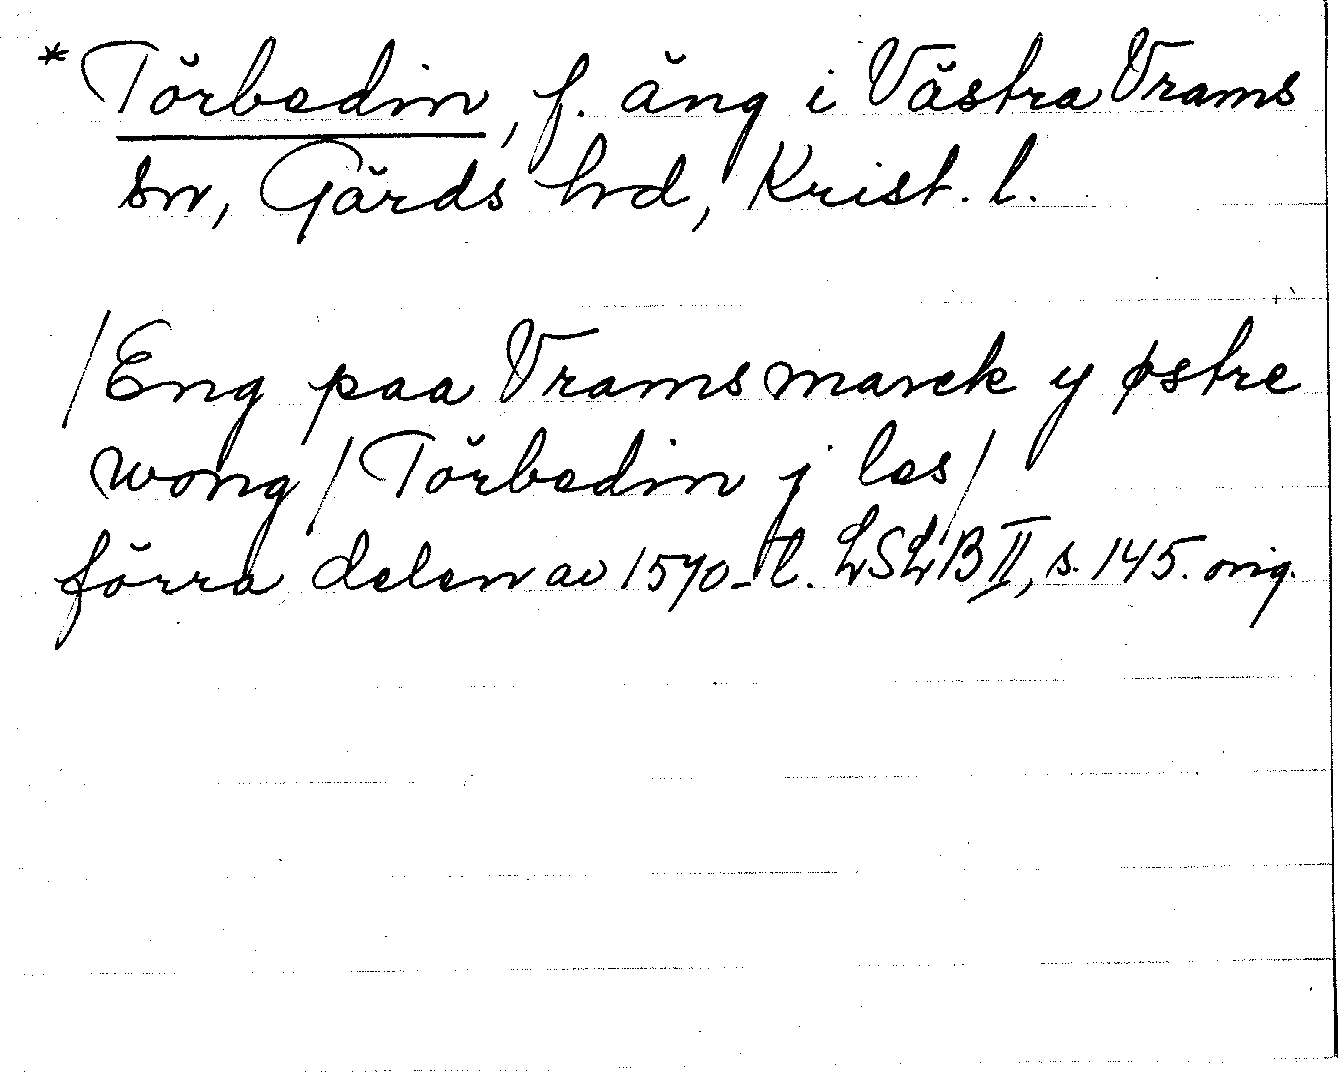 * Törbedin, f. äng i Västra Vrams
sn, Gärds hd, Krist. l.
/Eng paa Vramsmarck y østre
wong / Törbedin j les/
förra delen av 1570-t. LSLB II, s. 145. orig.